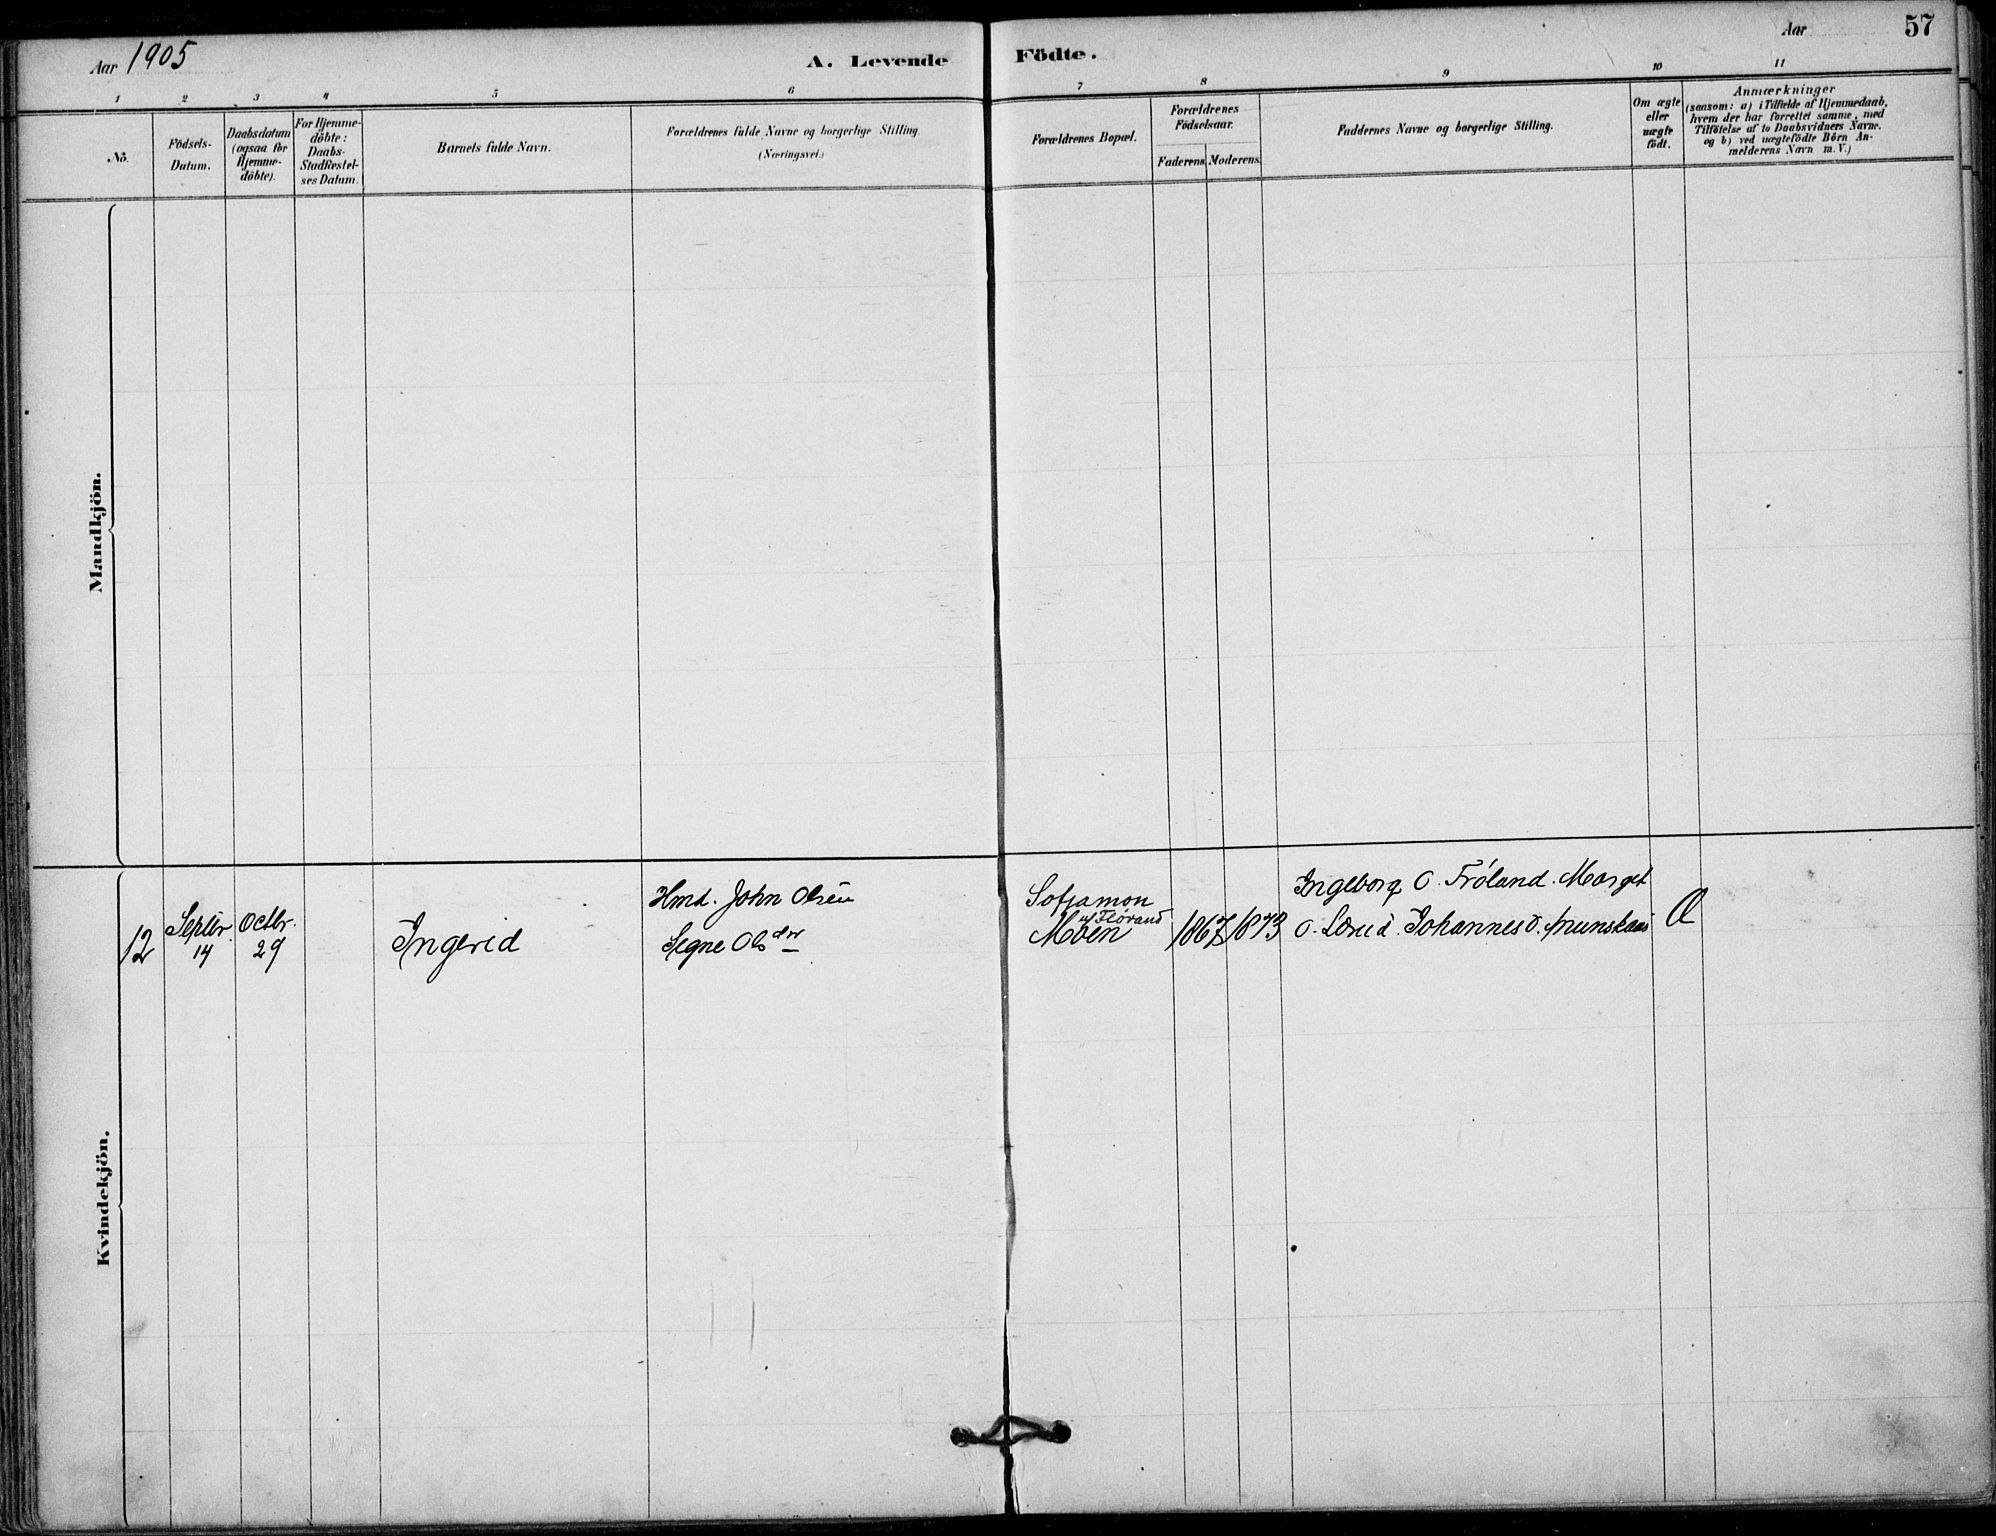 Aar 1905
A. Levende Födte.
Aar
57
1 2 3 4 5 6 7 8 9 10 11
No.
Födsels-
Datum.
Daabsdatum
(ogsaa for
Hjemme-
döbte).
For Hjemme-
döbte:
Daabs-
Stadfæstel-
ses Datum.
Barnets fulde Navn.
Forældrenes fulde Navne og borgerlige Stilling.
(Næringsvei.)
Forældrenes Bopæl.
Forældrenes
Födselsaar.
Faderens. Moderens.
Faddernes Navne og borgerlige Stilling.
Om ægte
eller
uægte
födt.
Anmærkninger
(saasom: a) i Tilfælde af Hjemmedaab,
hvem der har forrettet samme, med
Tilföielse af to Daabsvidners Navne.
og b) ved uægtefödte Börn An-
melderens Navn m. V.)
Mandkjön.
Kvindekjön.
12
Septbr.
14
Octbr.
29
Ingerid
Hmd. John Olsen
Signe Olsdtr
Moen
1867
1873
Ingeborg O. Fröland. Marget
O. Johannes O.
Æ